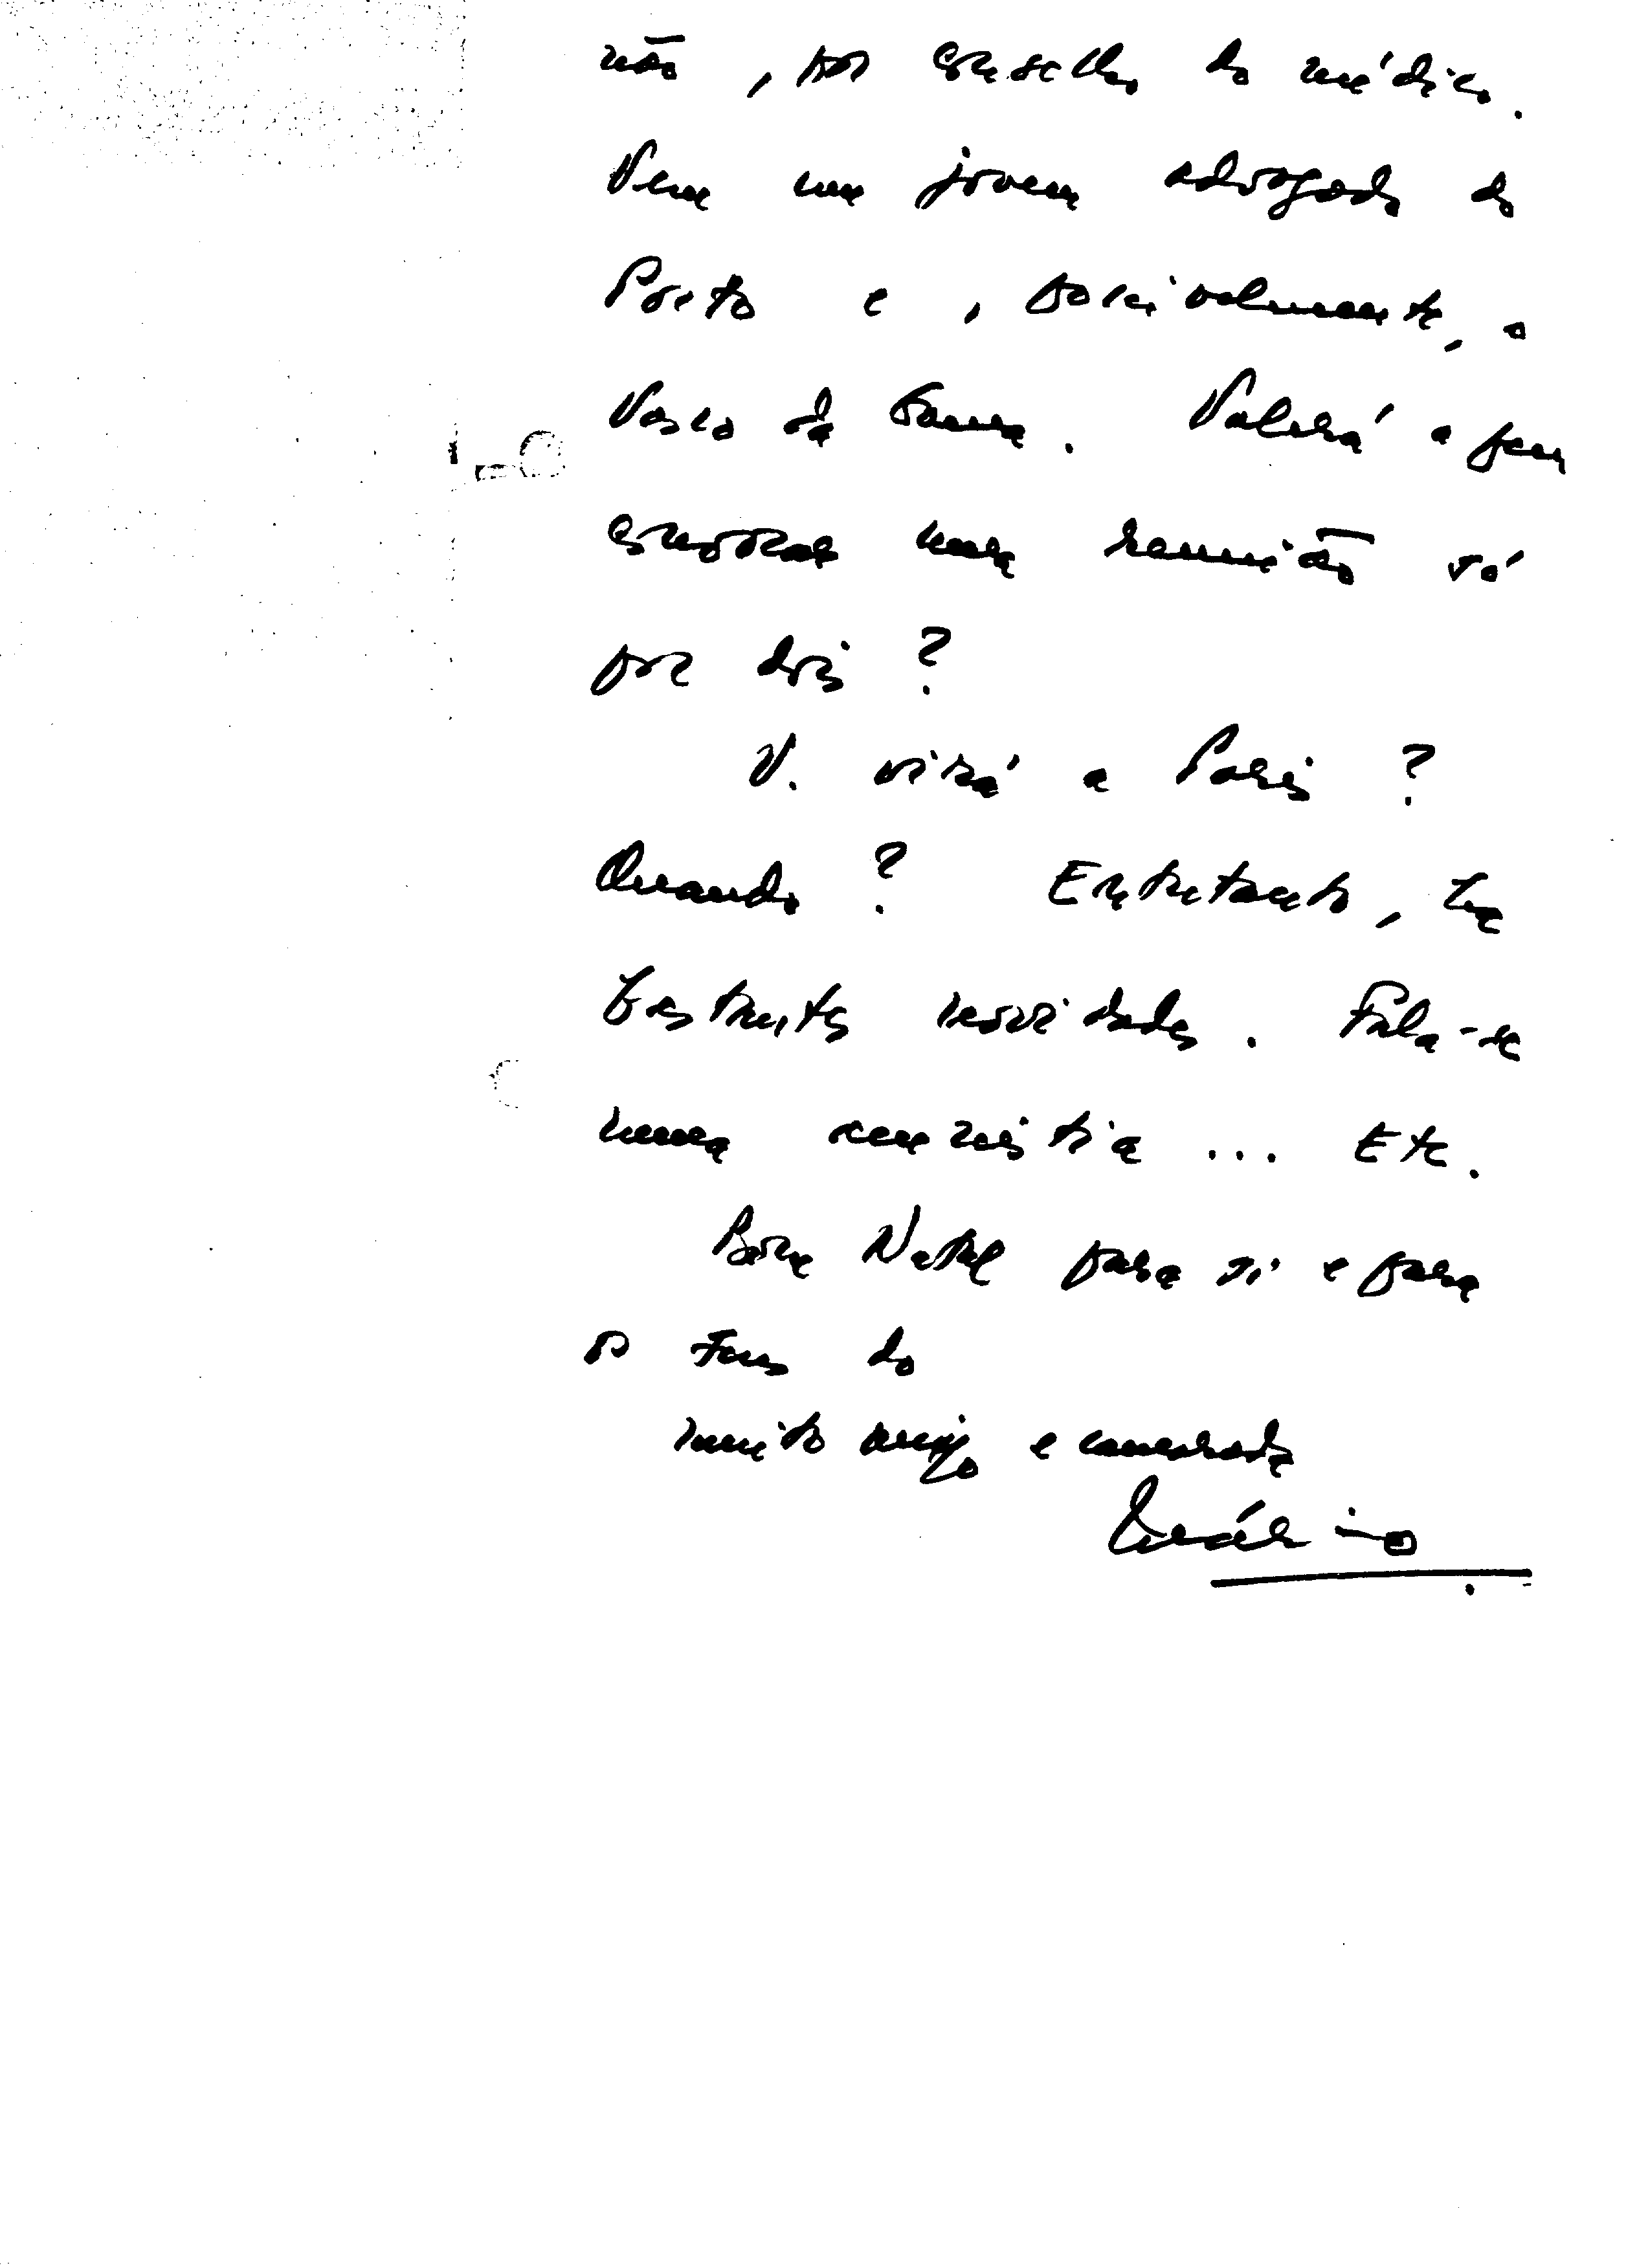 não, por conselho do médico.
Vem um jovem advogado do
Porto e, possivelmente, o
Vasco da Gama. Valerá a pena
convocar uma reunião só
por dois?
V. virá a Paris?
Quando? Entretanto, há
bastantes novidades. Fala-se
numa amnistia... Etc.
Bom Natal para si e para
os seus do
muito amigo e camarada
Mário